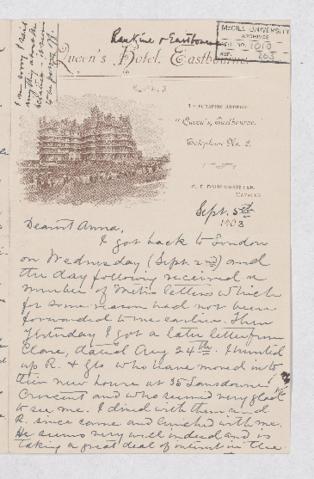 Rankine & Eastbourne
McGILL UNIVERSITY
ARCHIVES
ACC. NO. 1010
REF. 263
I am sorry I said
anything
Queen's Hotel, Eastbourne.
"Queen's, Eastbourne.
Telephone No. 2.
Sept. 5th
1903
Dearest Anna,
I got back to London
on Wednesday (Sept. 2nd) and
the day following received a
number of Metis letters which
for some reason had not been
forwarded to me earlier. Then
yesterday I got a later letter from
Clare, dated Aug 24th. I hunted
up R. & Glo who have moved into
their new house at 35 Lansdowne
Crescent and who seemed very glad
to see me. I dined with them and
R. since came and lunched with me.
He seems very well indeed and is
taking a great deal of interest in the